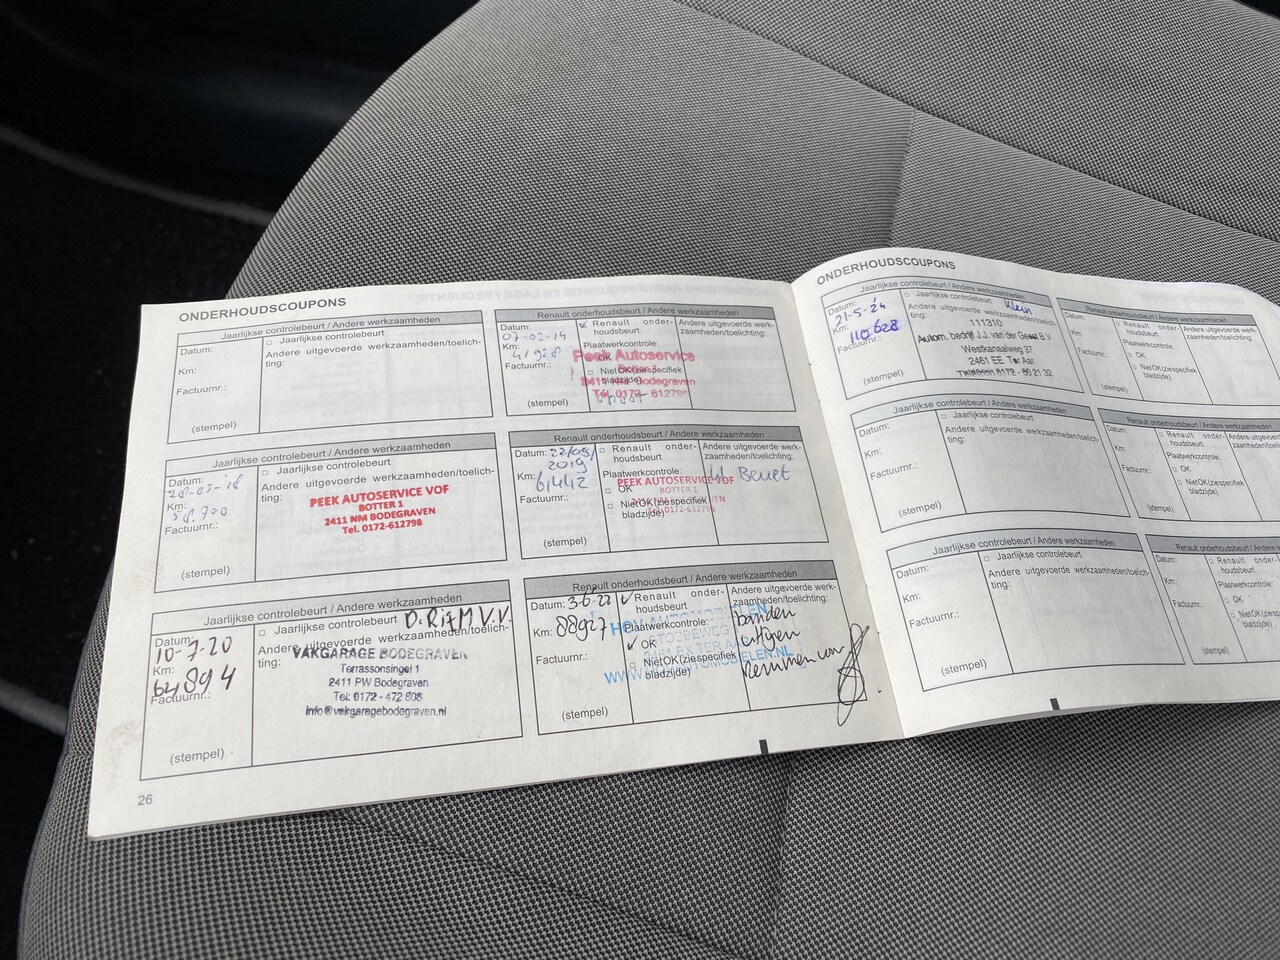 ONDERHOUDSCOUPONS
Jaarlijkse controlebeurt / Andere werkzaamheden
Datum:
Km:
Factuurnr.:
(stempel)
□ Jaarlijkse controlebeurt
Andere uitgevoerde werkzaamheden/toelich-
ting:
Renault onderhoudsbeurt / Andere werkzaamheden
Datum:
07-02-14
Km:
41928
Factuurnr.:
(stempel)
Renault onder-
houdsbeurt
Plaatwerkcontrole:
□ OK
□ NietOK(ziespecifiek
bladzijde)
Andere uitgevoerde werk-
zaamheden/toelichting:
Peek Autoservice
2411 NM Bodegraven
Tel. 0172-612798
Jaarlijkse controlebeurt / Andere werkzaamheden
Datum:
28-05-'18
Km:
58.700
Factuurnr.:
(stempel)
□ Jaarlijkse controlebeurt
Andere uitgevoerde werkzaamheden/toelich-
ting:
PEEK AUTOSERVICE VOF
BOTTER 1
2411 NM BODEGRAVEN
Tel. 0172-612798
Renault onderhoudsbeurt / Andere werkzaamheden
Datum: 22/05/
2019
Km: 61442
Factuurnr.:
(stempel)
□ Renault onder-
houdsbeurt
Plaatwerkcontrole:
□ OK
□ NietOK(ziespecifiek
bladzijde)
Andere uitgevoerde werk-
zaamheden/toelichting:
Beurt
PEEK AUTOSERVICE VOF
BOTTER 1
Tel. 0172-612798
Jaarlijkse controlebeurt / Andere werkzaamheden
Datum:
10-7-20
Km:
64894
Factuurnr.:
(stempel)
□ Jaarlijkse controlebeurt
Andere uitgevoerde werkzaamheden/toelich-
ting:
VAKGARAGE BODEGRAVEN
Terrassonsingel 1
2411 PW Bodegraven
Tel: 0172 - 472 808
info@vakgaragebodegraven.nl
Renault onderhoudsbeurt / Andere werkzaamheden
Datum: 3-6-22
Km: 88927
Factuurnr.:
(stempel)
Renault onder-
houdsbeurt
Plaatwerkcontrole:
OK
□ NietOK(ziespecifiek
bladzijde)
Andere uitgevoerde werk-
zaamheden/toelichting:
banden
remmen voor
26
ONDERHOUDSCOUPONS
Jaarlijkse controlebeurt / Andere werkzaamheden
Datum:
21-5-24
Km:
110628
Factuurnr.:
(stempel)
□ Jaarlijkse controlebeurt Klein
Andere uitgevoerde werkzaamheden/toelich-
ting:
111310
Autom. bedrijf J.J. van der Geest B.V
Westkanaalweg 37
2461 EE Ter Aar
Telefoon 0172 - 60 21 32
Renault onderhoudsbeurt / Andere werkzaamheden
Datum:
Km:
Factuurnr.:
(stempel)
□ Renault onder-
houdsbeurt
Plaatwerkcontrole:
□ OK
□ NietOK(ziespecifiek
bladzijde)
Andere uitgevoerde werk-
zaamheden/toelichting:
Jaarlijkse controlebeurt / Andere werkzaamheden
Datum:
Km:
Factuurnr.:
(stempel)
□ Jaarlijkse controlebeurt
Andere uitgevoerde werkzaamheden/toelich-
ting:
Renault onderhoudsbeurt / Andere werkzaamheden
Datum:
Km:
Factuurnr.:
(stempel)
□ Renault onder-
houdsbeurt
Plaatwerkcontrole:
□ OK
□ NietOK(ziespecifiek
bladzijde)
Andere uitgevoerde
zaamheden/toelichting:
Jaarlijkse controlebeurt / Andere werkzaamheden
Datum:
Km:
Factuurnr.:
(stempel)
□ Jaarlijkse controlebeurt
Andere uitgevoerde werkzaamheden/toelich-
ting:
Renault onderhoudsbeurt
Datum:
Km:
Factuurnr.:
(stempel)
□ Renault onder-
houdsbeurt
Plaatwerkcontrole:
□ OK
□ NietOK(ziespecifiek
bladzijde)